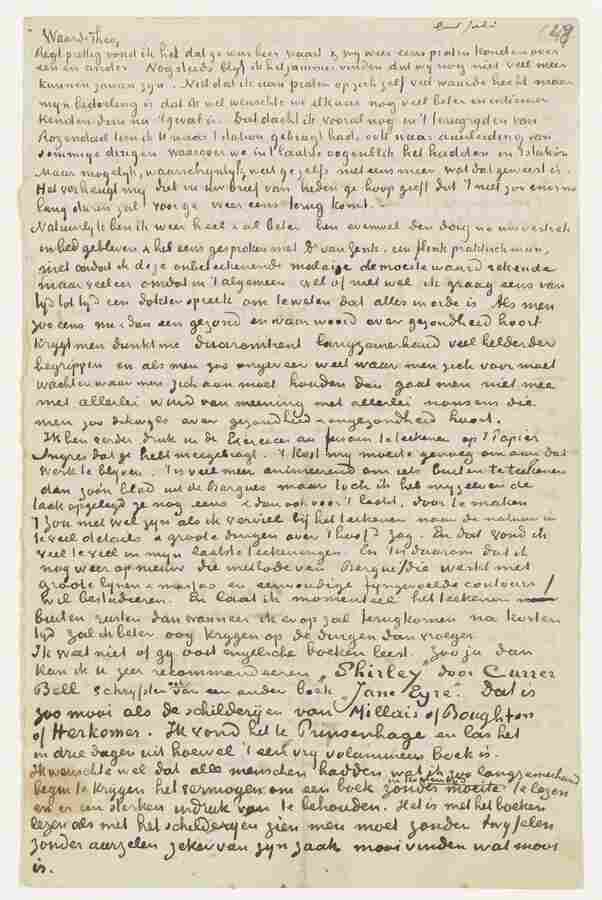 eind Juli
49
Waarde Theo,
Regt prettig vond ik het dat ge weer hier waart & wij weer eens praten konden over
een en ander. Nog steeds blijf ik het jammer vinden dat wij nog niet veel meer
kunnen zamen zijn. Niet dat ik aan praten op zich zelf veel waarde hecht maar
mijn bedoeling is dat ik wel wenschte we elkaar nog veel beter en intiemer
kenden dan nu 't geval is. Dat dacht ik vooral nog in 't terugrijden van
Rozendaal toen ik U naar 't station gebragt had, ook naar aanleiding van
sommige dingen waarover we in 't laatste oogenblik het hadden in 't station
Maar mogelijk, waarschijnlijk, weet ge zelfs niet eens meer wat dat geweest is.
Het verheugt mij dat in uw brief van heden ge hoop geeft dat 't niet zoo enorm
lang duren zal voor ge weer eens terug komt. —
Natuurlijk ben ik weer heel & al beter ben evenwel den dag na uw vertrek
in bed gebleven & heb eens gesproken met Dr van Genk, een flink praktisch man,
niet omdat ik deze onbeteekenende malaise de moeite waard rekende
maar veeleer omdat in 't algemeen wel of niet wel ik graag eens van
tijd tot tijd een dokter spreek om te weten dat alles in orde is. Als men
zoo eens nu & dan een gezond en waar woord over gezondheid hoort
krijgt men dunkt me daaromtrent langzamerhand veel helderder
begrippen en als men zoo ongeveer weet waar men zich voor moet
wachten waar men zich aan moet houden dan gaat men niet mee
met allerlei wind van meening met allerlei nonsens die
men zoo dikwijls over gezondheid & ongezondheid hoort.
Ik ben verder druk in de Exercices au fusain te teekenen op 't Papier
Ingres dat ge hebt meegebragt. 't Kost mij moeite genoeg om aan dat
werk te blijven. 't Is veel meer animeerend om iets buiten te teekenen
dan zoo'n blad uit de Bargues maar toch ik heb mijzelven de
taak opgelegd ze nog eens & dan ook voor 't laatst, door te maken
't Zou niet wel zijn als ik verviel bij het teekenen naar de natuur in
te veel details & groote dingen over 't hoofd zag. En dat vond ik
veel te veel in mijn laatste teekeningen. En 't is daarom dat ik
nog weer opnieuw die methode van Bargue (die werkt met
groote lijnen & massas en eenvoudige fijngevoelde contours)
wil bestudeeren. En laat ik momenteel het teekenen
buiten rusten dan wanneer ik er op zal terugkomen na korten
tijd zal ik beter oog krijgen op de dingen dan vroeger.
Ik weet niet of gij ooit engelsche boeken leest. Zoo ja dan
kan ik U zeer rekommandeeren „Shirley" door Currer
Bell schrijfster van een ander boek „Jane Eyre". Dat is
zoo mooi als de schilderijen van Millais of Boughton
of Herkomer. Ik vond het te Prinsenhage en las het
in drie dagen uit hoewel 't een vrij volumineus boek is.
Ik wenschte wel dat alle menschen hadden wat ik zoo langzamerhand
begin te krijgen het vermogen om een boek in korten tijd zonder moeite te lezen
en er een sterken indruk van te behouden. Het is met het boeken
lezen als met het schilderijen zien men moet zonder twijfelen
zonder aarzelen zeker van zijn zaak mooi vinden wat mooi
is.